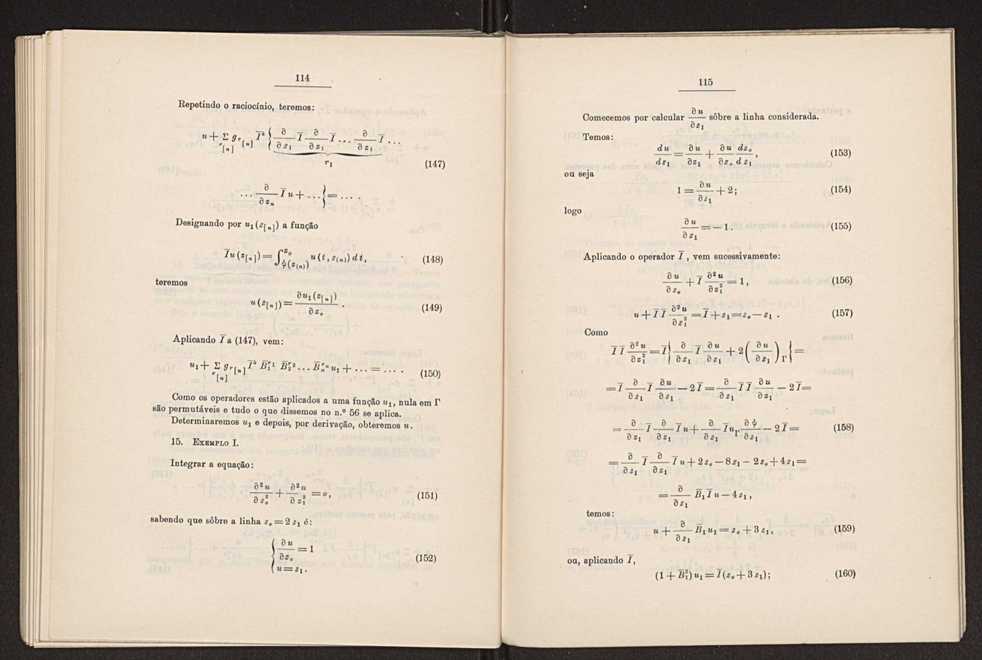 114
Repetindo o raciocínio, teremos:
u + Σ g_{r[n]} Ī^{h} { ∂/∂z₁ Ī ∂/∂z₁ Ī ... ∂/∂z₁ Ī ...
[n] r₁ (147)
... ∂/∂zₙ Ī u + ... } = ... .
Designando por u₁(z[n]) a função
Ī u(z[n]) = ∫_{ψ(z(n))}^{z₀} u(t, z(n)) dt, (148)
teremos
u(z[n]) = ∂u₁(z[n])/∂z₀ . (149)
Aplicando Ī a (147), vem:
u₁ + Σ g_{r[n]} Ī^{h} B̄₁^{r₁} B̄₂^{r₂} ... B̄ₙ^{rₙ} u₁ + ... = ... . (150)
[n]
Como os operadores estão aplicados a uma função u₁, nula em Γ
são permutáveis e tudo o que dissemos no n.º 56 se aplica.
Determinaremos u₁ e depois, por derivação, obteremos u.
15. EXEMPLO I.
Integrar a equação:
∂²u/∂z₀² + ∂²u/∂z₁² = 0, (151)
sabendo que sôbre a linha z₀ = 2 z₁ é:
{ ∂u/∂z₀ = 1
(152)
u = z₁ .
115
Comecemos por calcular ∂u/∂z₁ sôbre a linha considerada.
Temos:
du/dz₁ = ∂u/∂z₁ + ∂u/∂z₀ dz₀/dz₁ , (153)
ou seja
1 = ∂u/∂z₁ + 2; (154)
logo
∂u/∂z₁ = — 1 . (155)
Aplicando o operador Ī , vem sucessivamente:
∂u/∂z₀ + Ī ∂²u/∂z₁² = 1, (156)
u + Ī Ī ∂²u/∂z₁² = Ī + z₁ = z₀ — z₁ . (157)
Como
Ī Ī ∂²u/∂z₁² = Ī { ∂/∂z₁ Ī ∂u/∂z₁ + 2 ( ∂u/∂z₁ )_Γ } =
= Ī ∂/∂z₁ Ī ∂u/∂z₁ — 2 Ī = ∂/∂z₁ Ī Ī ∂u/∂z₁ — 2 Ī =
= ∂/∂z₁ Ī ∂/∂z₁ Ī u + ∂/∂z₁ Ī u_Γ ∂ψ/∂z₁ — 2 Ī = (158)
= ∂/∂z₁ Ī ∂/∂z₁ Ī u + 2 z₀ — 8 z₁ — 2 z₀ + 4 z₁ =
= ∂/∂z₁ B̄₁ Ī u — 4 z₁ ,
temos:
u + ∂/∂z₁ B̄₁ u₁ = z₀ + 3 z₁, (159)
ou, aplicando Ī,
(1 + B̄₁²) u₁ = Ī (z₀ + 3 z₁); (160)